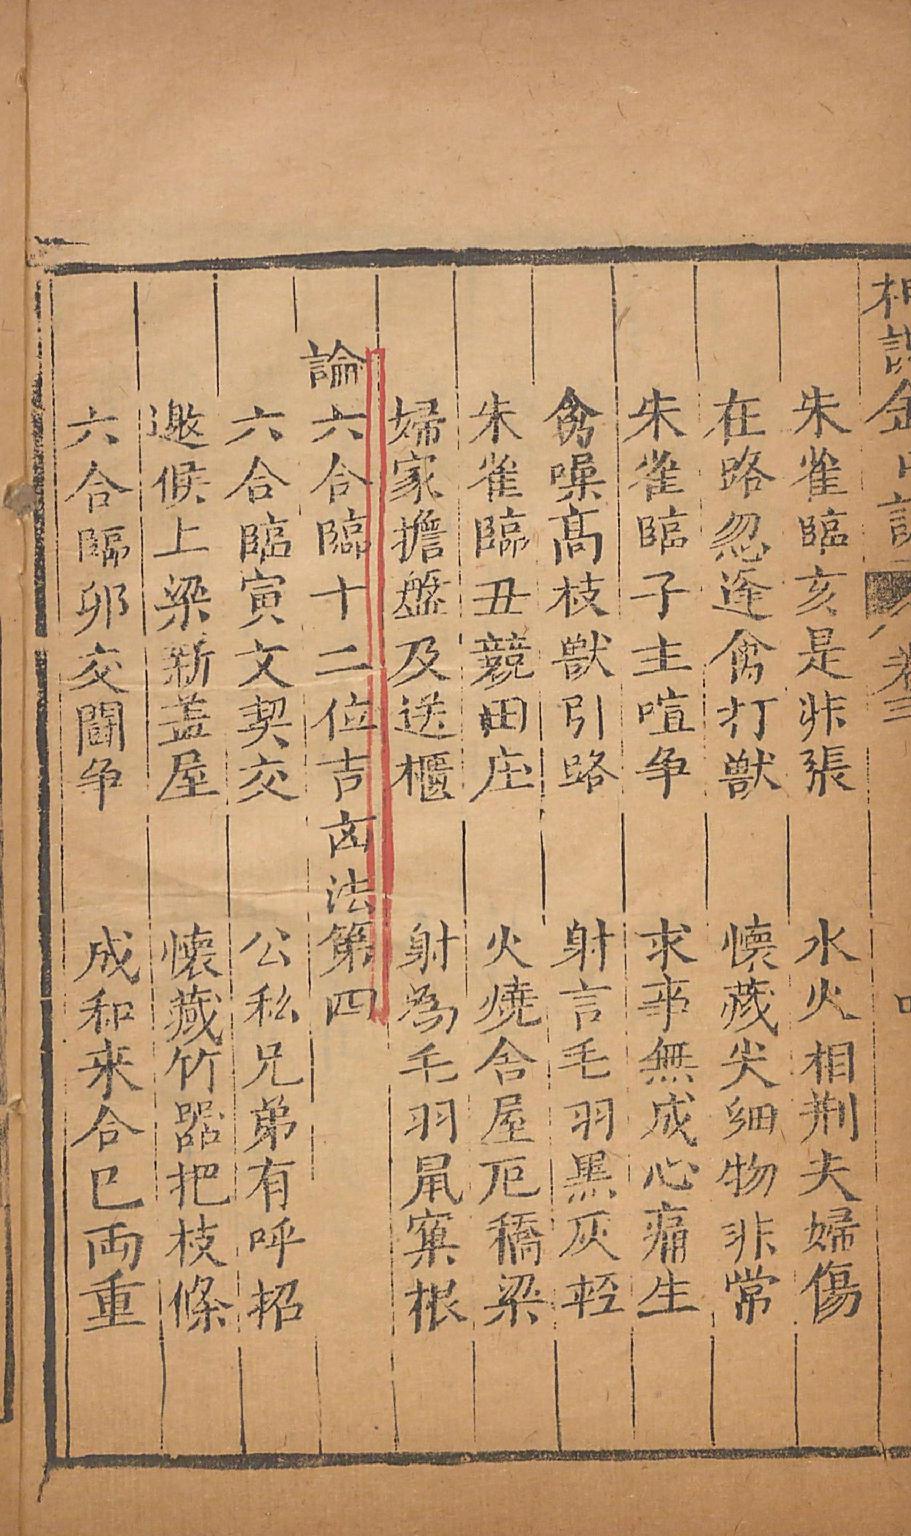 朱雀臨亥是非張　水火相刑夫婦傷
在路忽逢禽打獸　懷藏尖細物非常
朱雀臨子主喧争　求事無成心痛生
禽噪高枝獸引路　射言毛羽黑灰輕
朱雀臨丑競田庄　火燒舍屋厄橋梁
婦家擔盤及送櫃　射為毛羽鼠窠根
論六合臨十二位吉凶法第四
六合臨寅文契交　公私兄弟有呼招
邀候上梁新盖屋　懷藏竹器把枝條
六合臨卯交鬪争　成和来合已両重